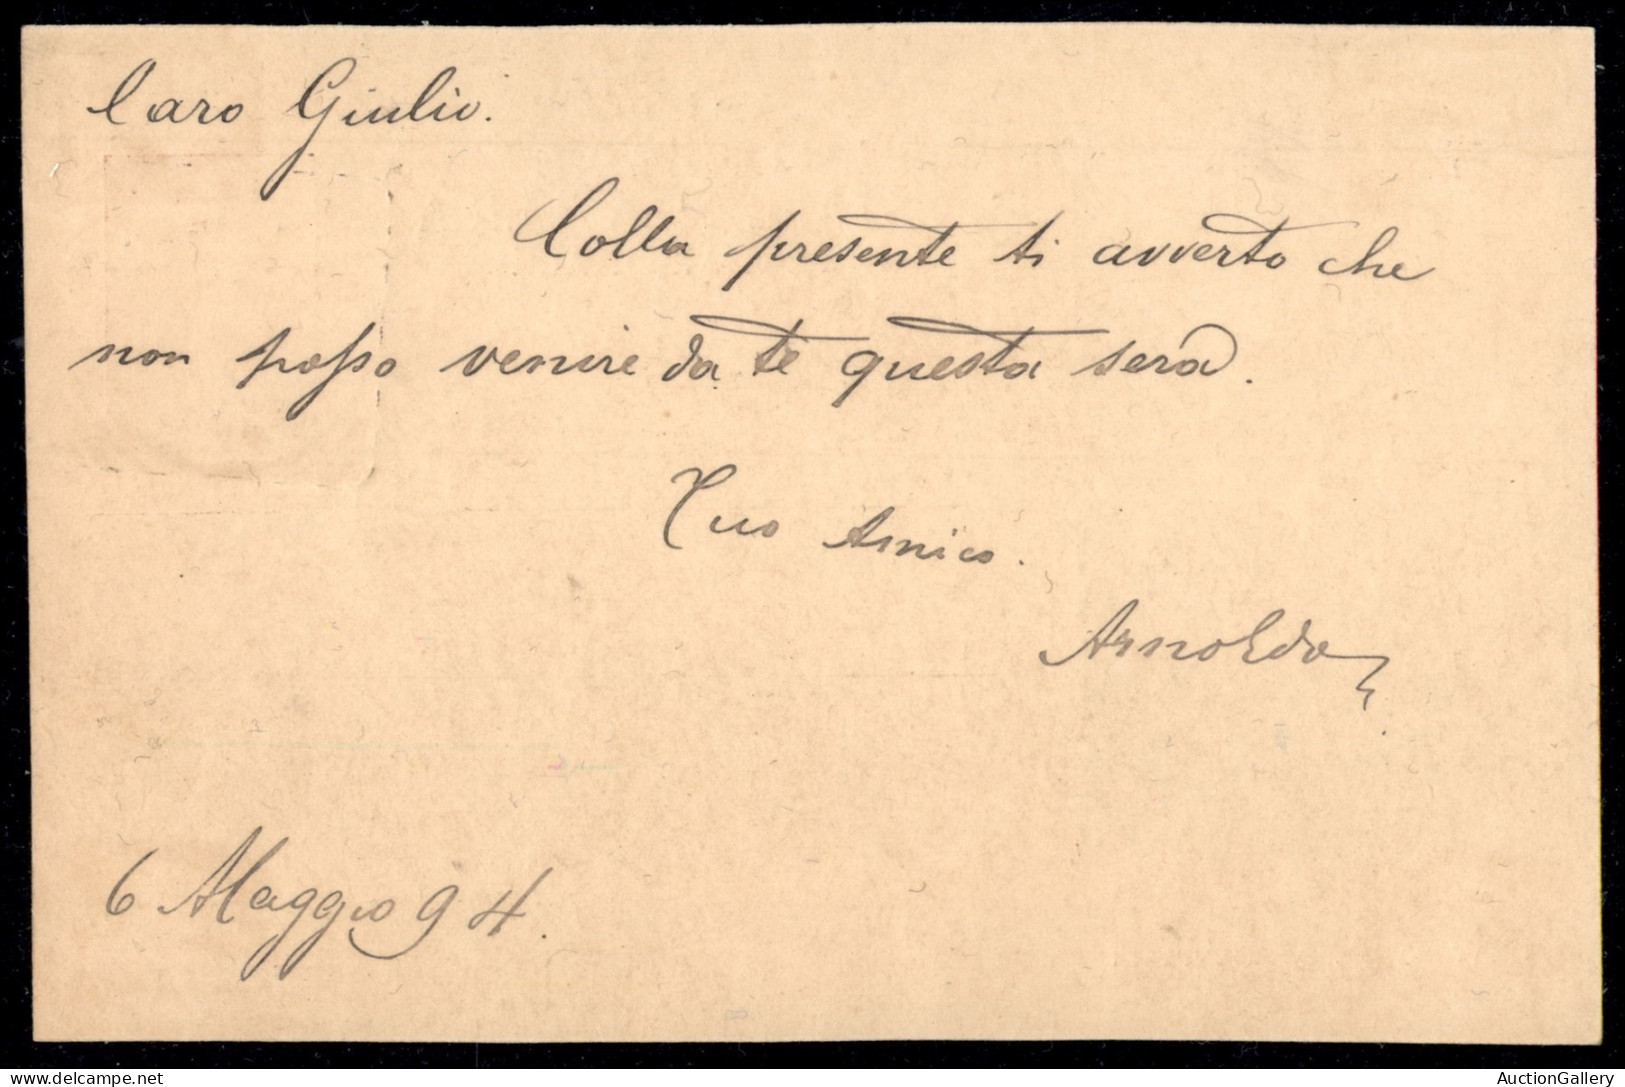 Caro Giulio.
Colla presente ti avverto che
non posso venire da te questa sera.
Tuo Amico.
Arnoldo
6 Maggio 94.
delcampe.net
AuctionGallery